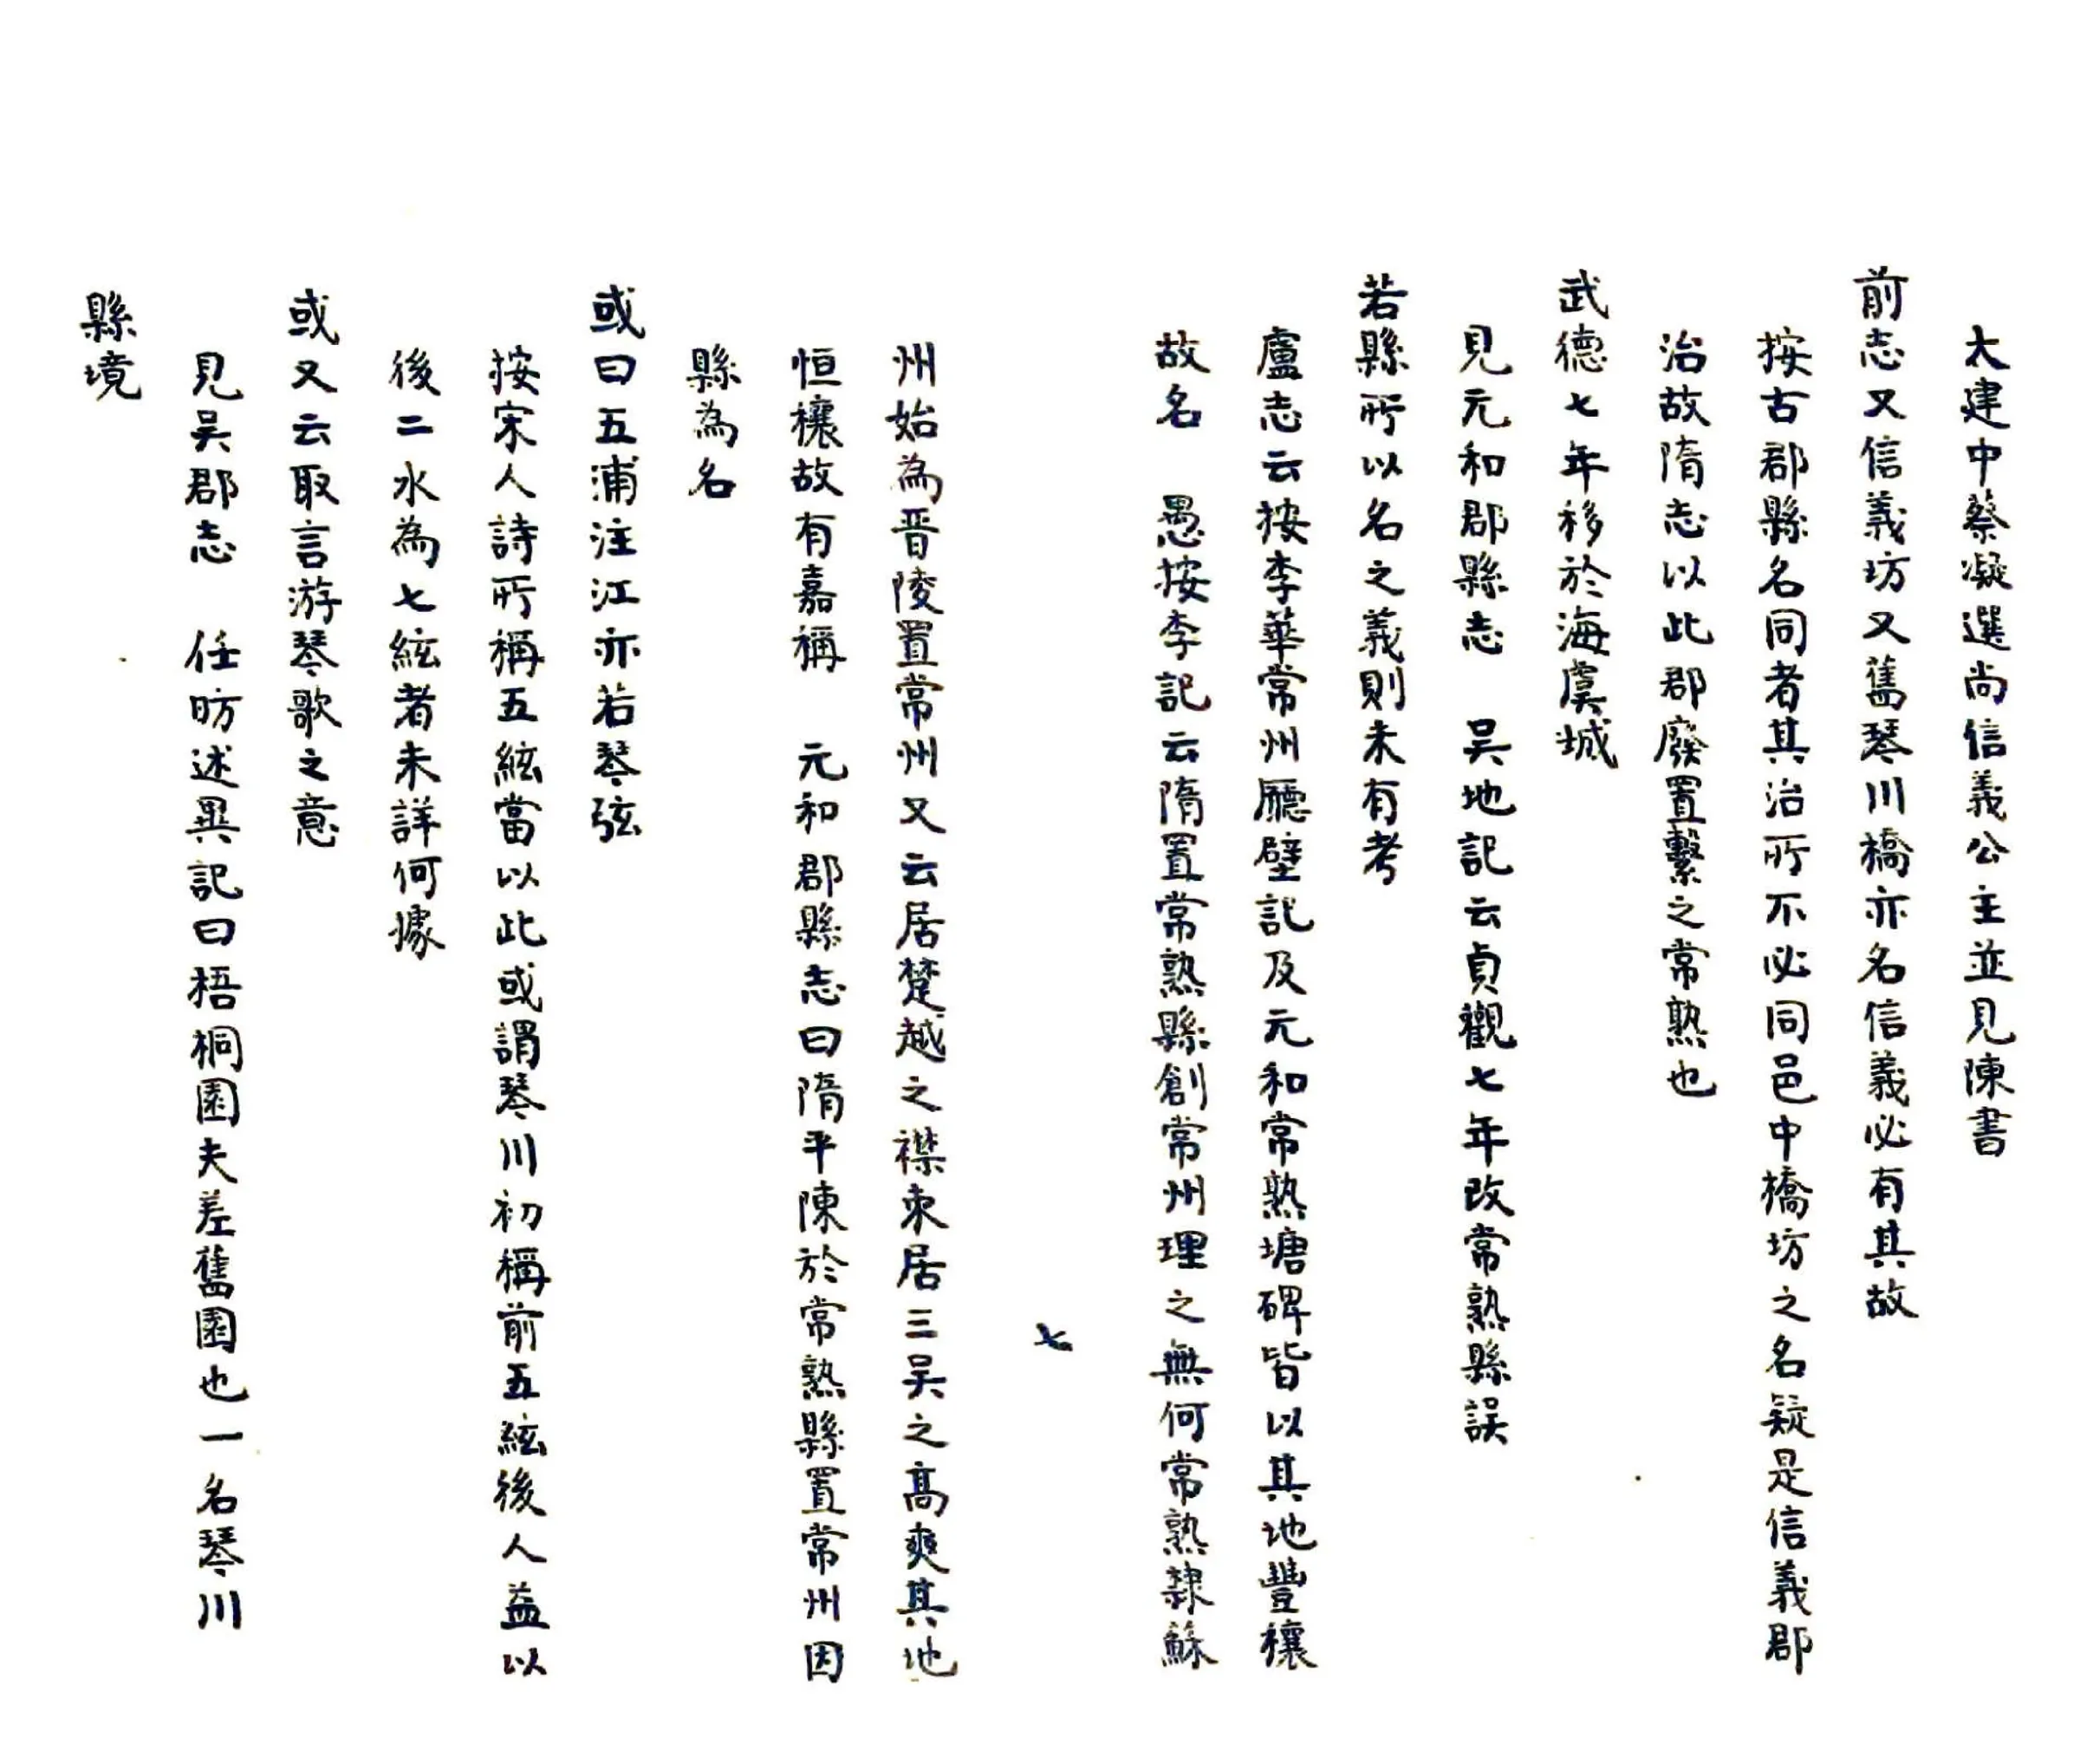 太建中蔡凝選尚信義公主並見陳書
前志又信義坊又舊琴川橋亦名信義必有其故
按古郡縣名同者其治所不必同邑中橋坊之名疑是信義郡
治故隋志以此郡廢置繫之常熟也
武德七年移於海虞城
見元和郡縣志　吳地記云貞觀七年改常熟縣誤
若縣所以名之義則未有考
盧志云按李華常州廳壁記及元和常熟塘碑皆以其地豐穰
故名　愚按李記云隋置常熟縣創常州理之無何常熟隸蘇
七
州始為晉陵置常州又云居楚越之襟束居三吳之高爽其地
恒穰故有嘉稱　元和郡縣志曰隋平陳於常熟縣置常州因
縣為名
或曰五浦注江亦若琴弦
按宋人詩所稱五絃當以此或謂琴川初稱前五絃後人益以
後二水為七絃者未詳何據
或又云取言游琴歌之意
見吳郡志　任昉述異記曰梧桐園夫差舊園也一名琴川
縣境